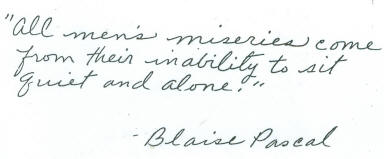 "All men's miseries come
from their inability to sit
quiet and alone."
- Blaise Pascal